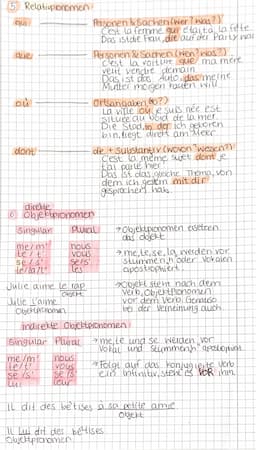 5) Relativpronomen:
qui — Personen & Sachen (wer? was?)
C'est la femme qui était à la fête
Das ist die Frau, die auf der Party war
que — Personen & Sachen (wen? was?)
C'est la voiture que ma mère
veut vendre demain.
Das ist das Auto, das meine
Mutter morgen kaufen will.
où — Ortsangaben (wo?)
La ville où je suis née est
située au bord de la mer.
Die Stadt, in der ich geboren
bin, liegt direkt am Meer.
dont — de + Substantiv (wovon? wessen?)
C'est le même sujet dont je
t'ai parlé hier.
Das ist das gleiche Thema, von
dem ich gestern mit dir
gesprochen hab.
direkte
Objektpronomen
Singular Plural
→ Objektpronomen ersetzen
das Objekt
me/m' nous
te/t' vous
se/s' se/s'
le/la/l' les
→ me, te, se, la, werden vor
stummen "h" oder Vokalen
apostrophiert
Julie aime le rap
Objekt
Julie l'aime
Objektpronomen
→ Objekt steht nach dem
Verb, Objektpronomen
vor dem Verb. Genauso
bei der Verneinung auch.
indirekte Objektpronomen
Singular Plural
me/m' nous
te/t' vous
se/s' se/s'
lui leur
→ me, te und se werden vor
Vokal und stummen "h" apostrophiert
→ Folgt auf das konjugierte Verb
ein Infinitiv, steht es VOR ihm.
Il dit des bêtises à sa petite amie
Objekt
Il lui dit des bêtises
Objektpronomen